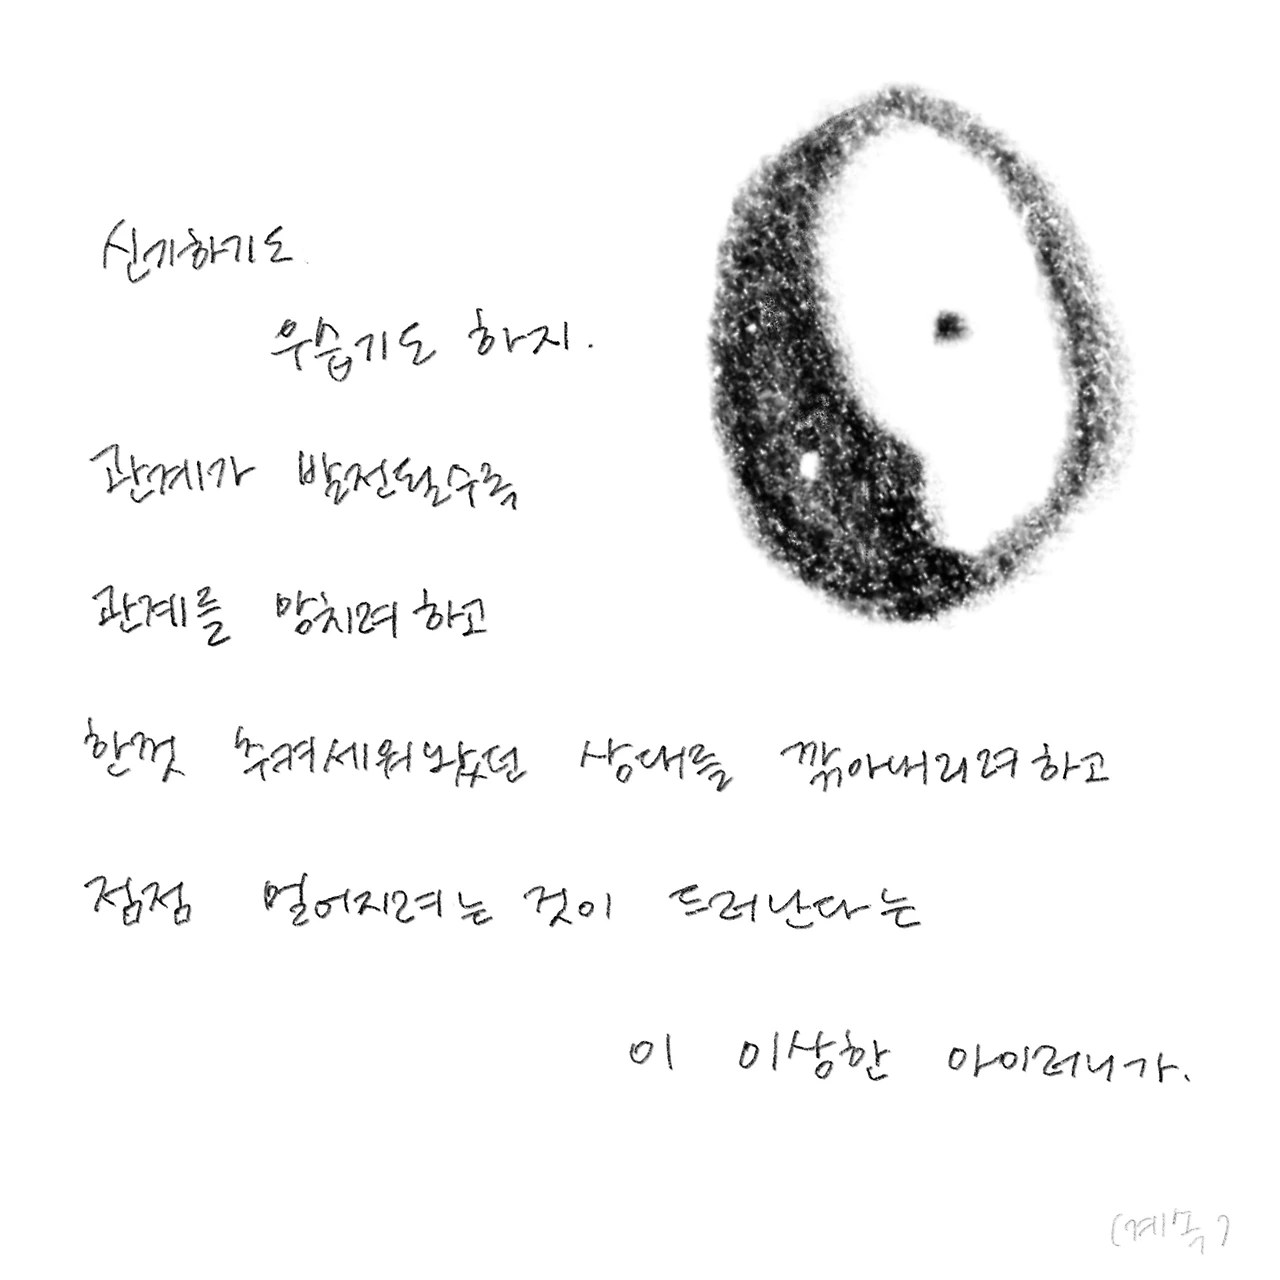 신기하기도
우습기도 하지.
관계가 발전될수록
관계를 망치려 하고
한껏 추켜세워놨던 상대를 깎아내리려 하고
점점 멀어지려는 것이 드러난다는
이 이상한 아이러니가.
(계속)